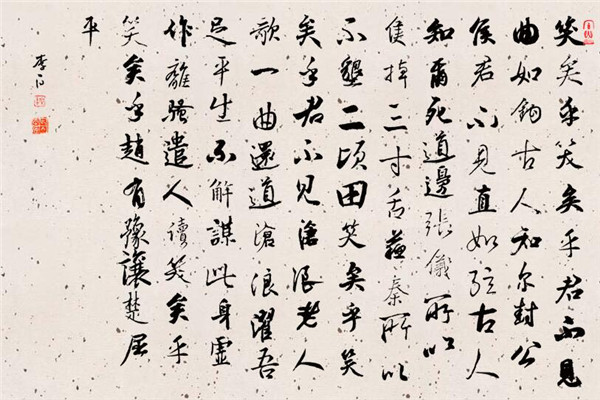 笑矣乎笑矣乎君不見
曲如鉤古人知尔封公
侯君不見直如弦古人
知爾死道邊張儀所以
隻掉三寸舌蘇秦所以
不墾二頃田笑矣乎笑
矣乎君不見滄浪老人
歌一曲還道滄浪濯吾
足平生不解謀此身虛
作離騷遣人讀笑矣乎
笑矣乎趙有豫讓楚屈
平
李